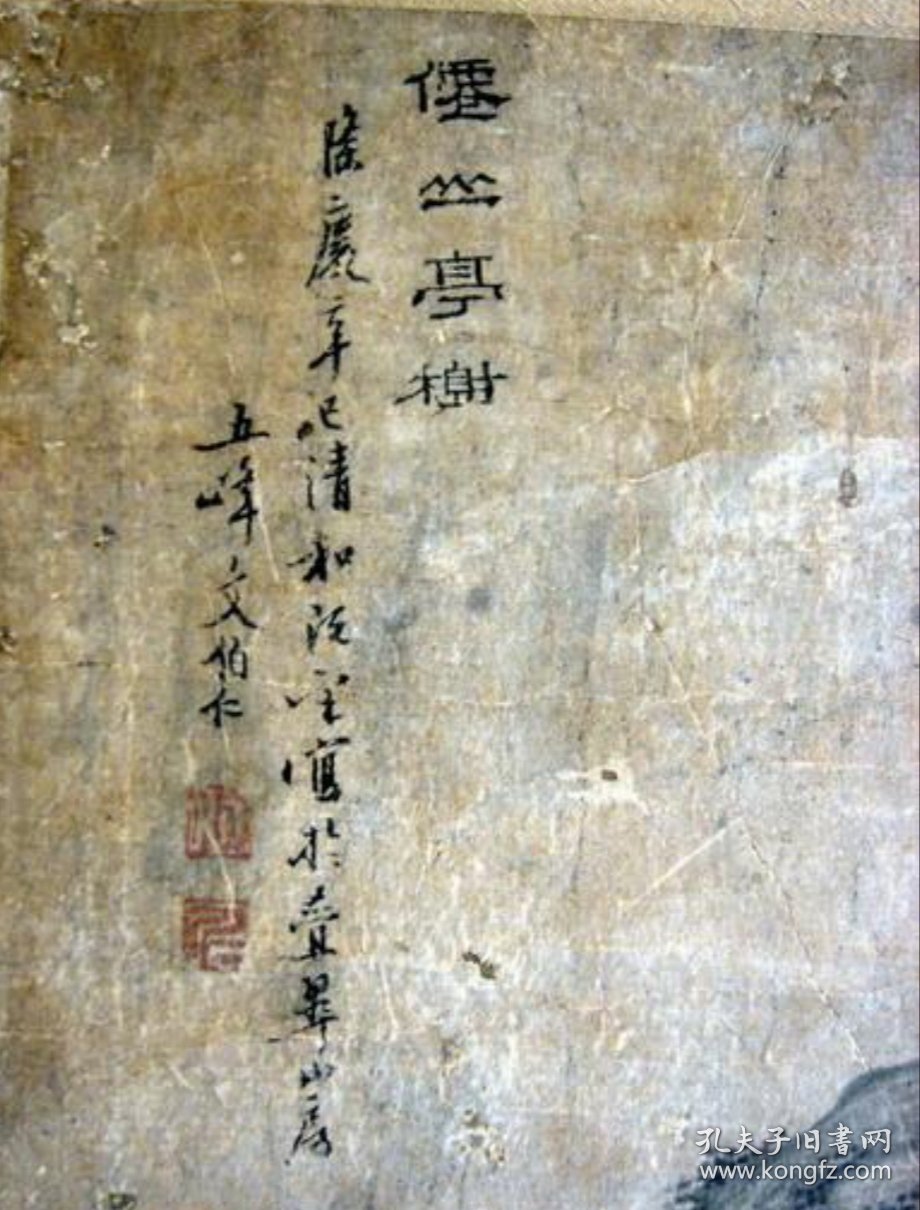 僊山亭榭
隆慶辛巳清和既望寫於叠翠山房
五峰文伯仁
孔夫子旧書网
www.kongfz.com